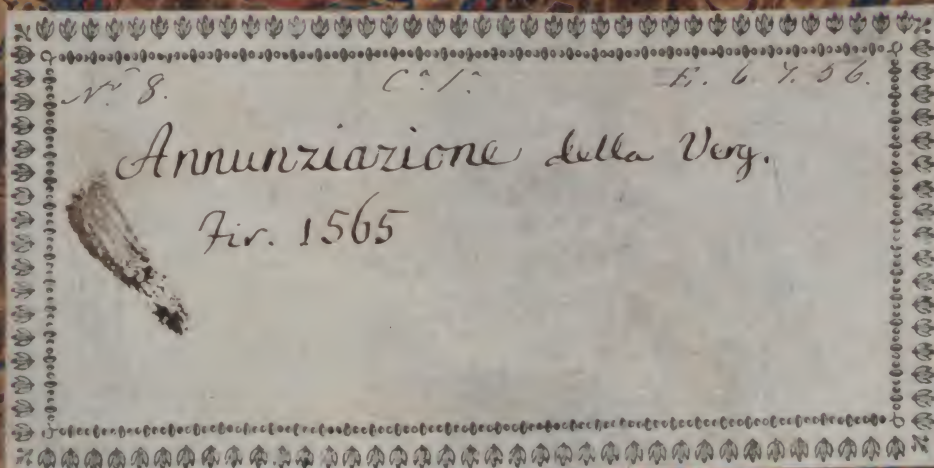 No. 8. Ca. 1a. E. 6. 7. 56.
Annunziazione della Verg.
Fir. 1565